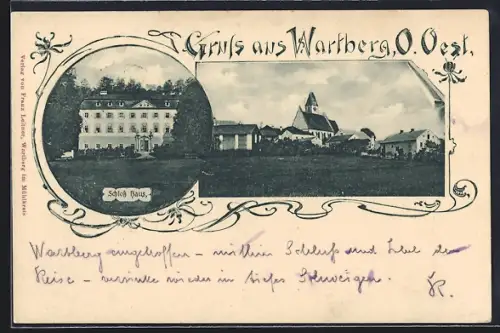 Gruss aus Wartberg, O. Oest.
Schloß Haus.
Verlag von Franz Leitner, Wartberg im Mühlkreis
Wartberg eingetroffen – mithin Schluß und Ziel der
Reise – versinke wieder in tiefes Schweigen.